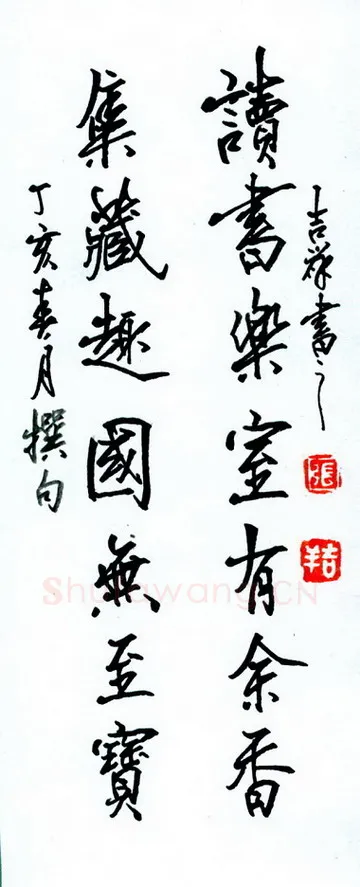 吉祥書之
張
吉羊
讀書樂室有余香
集藏趣國無至寶
丁亥春月撰句
Shufawang.CN